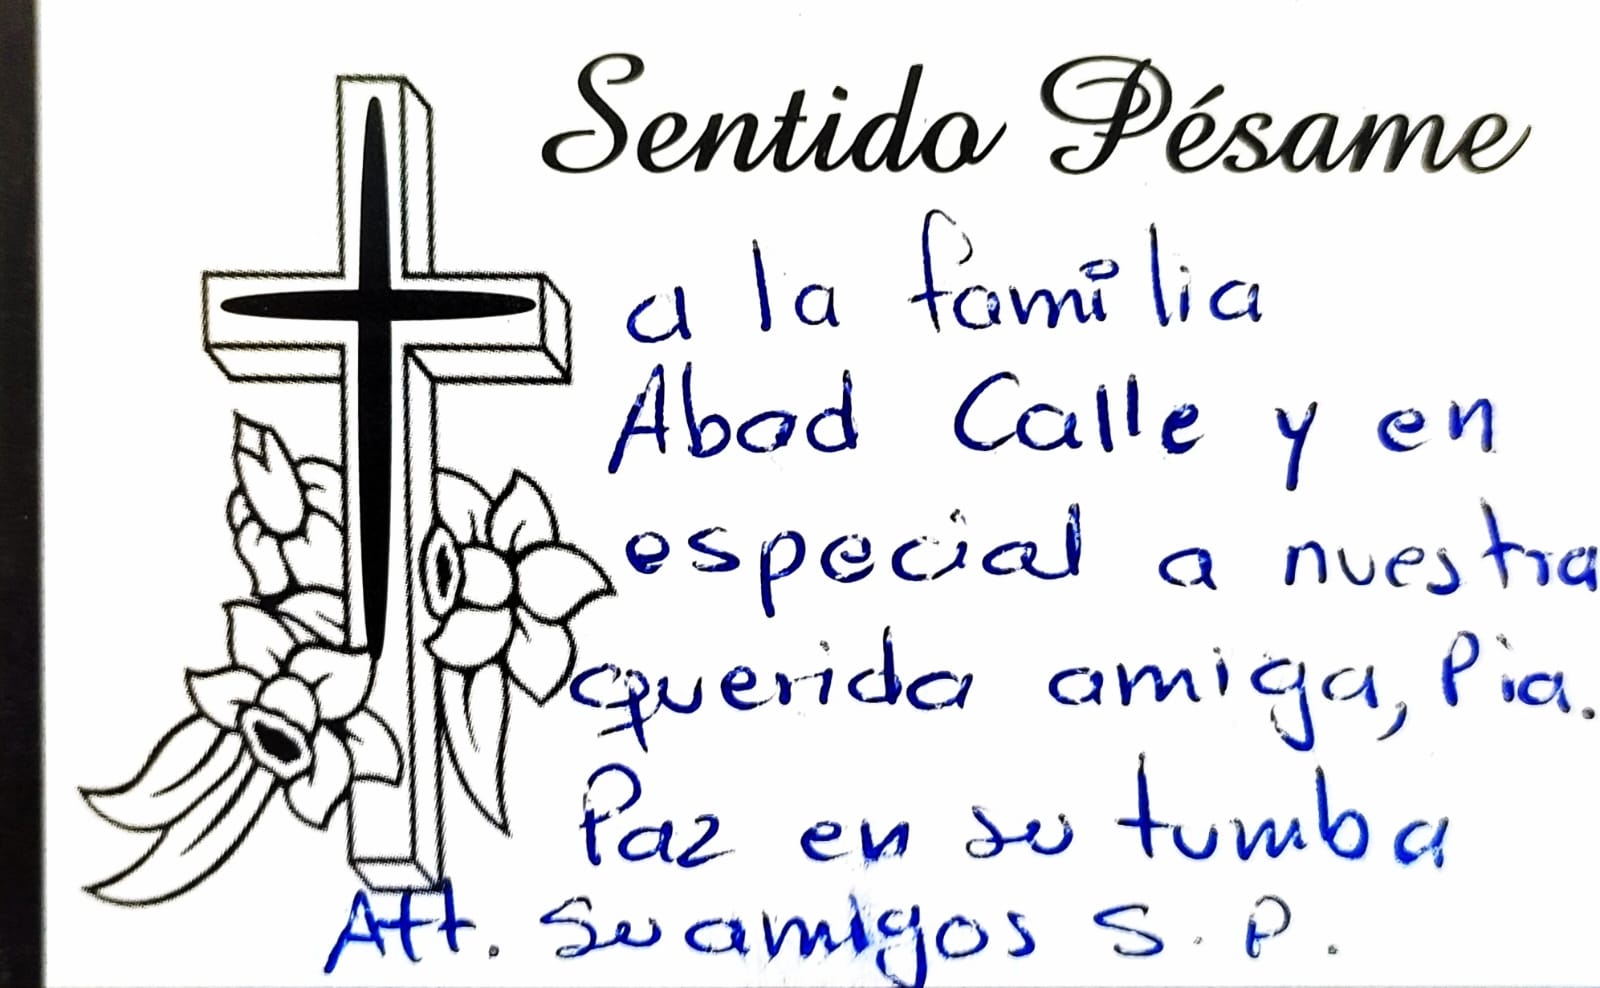 Sentido Pésame
a la familia
Abad Calle y en
especial a nuestra
querida amiga, Pia.
Paz en su tumba
Att. Su amigos S. P.